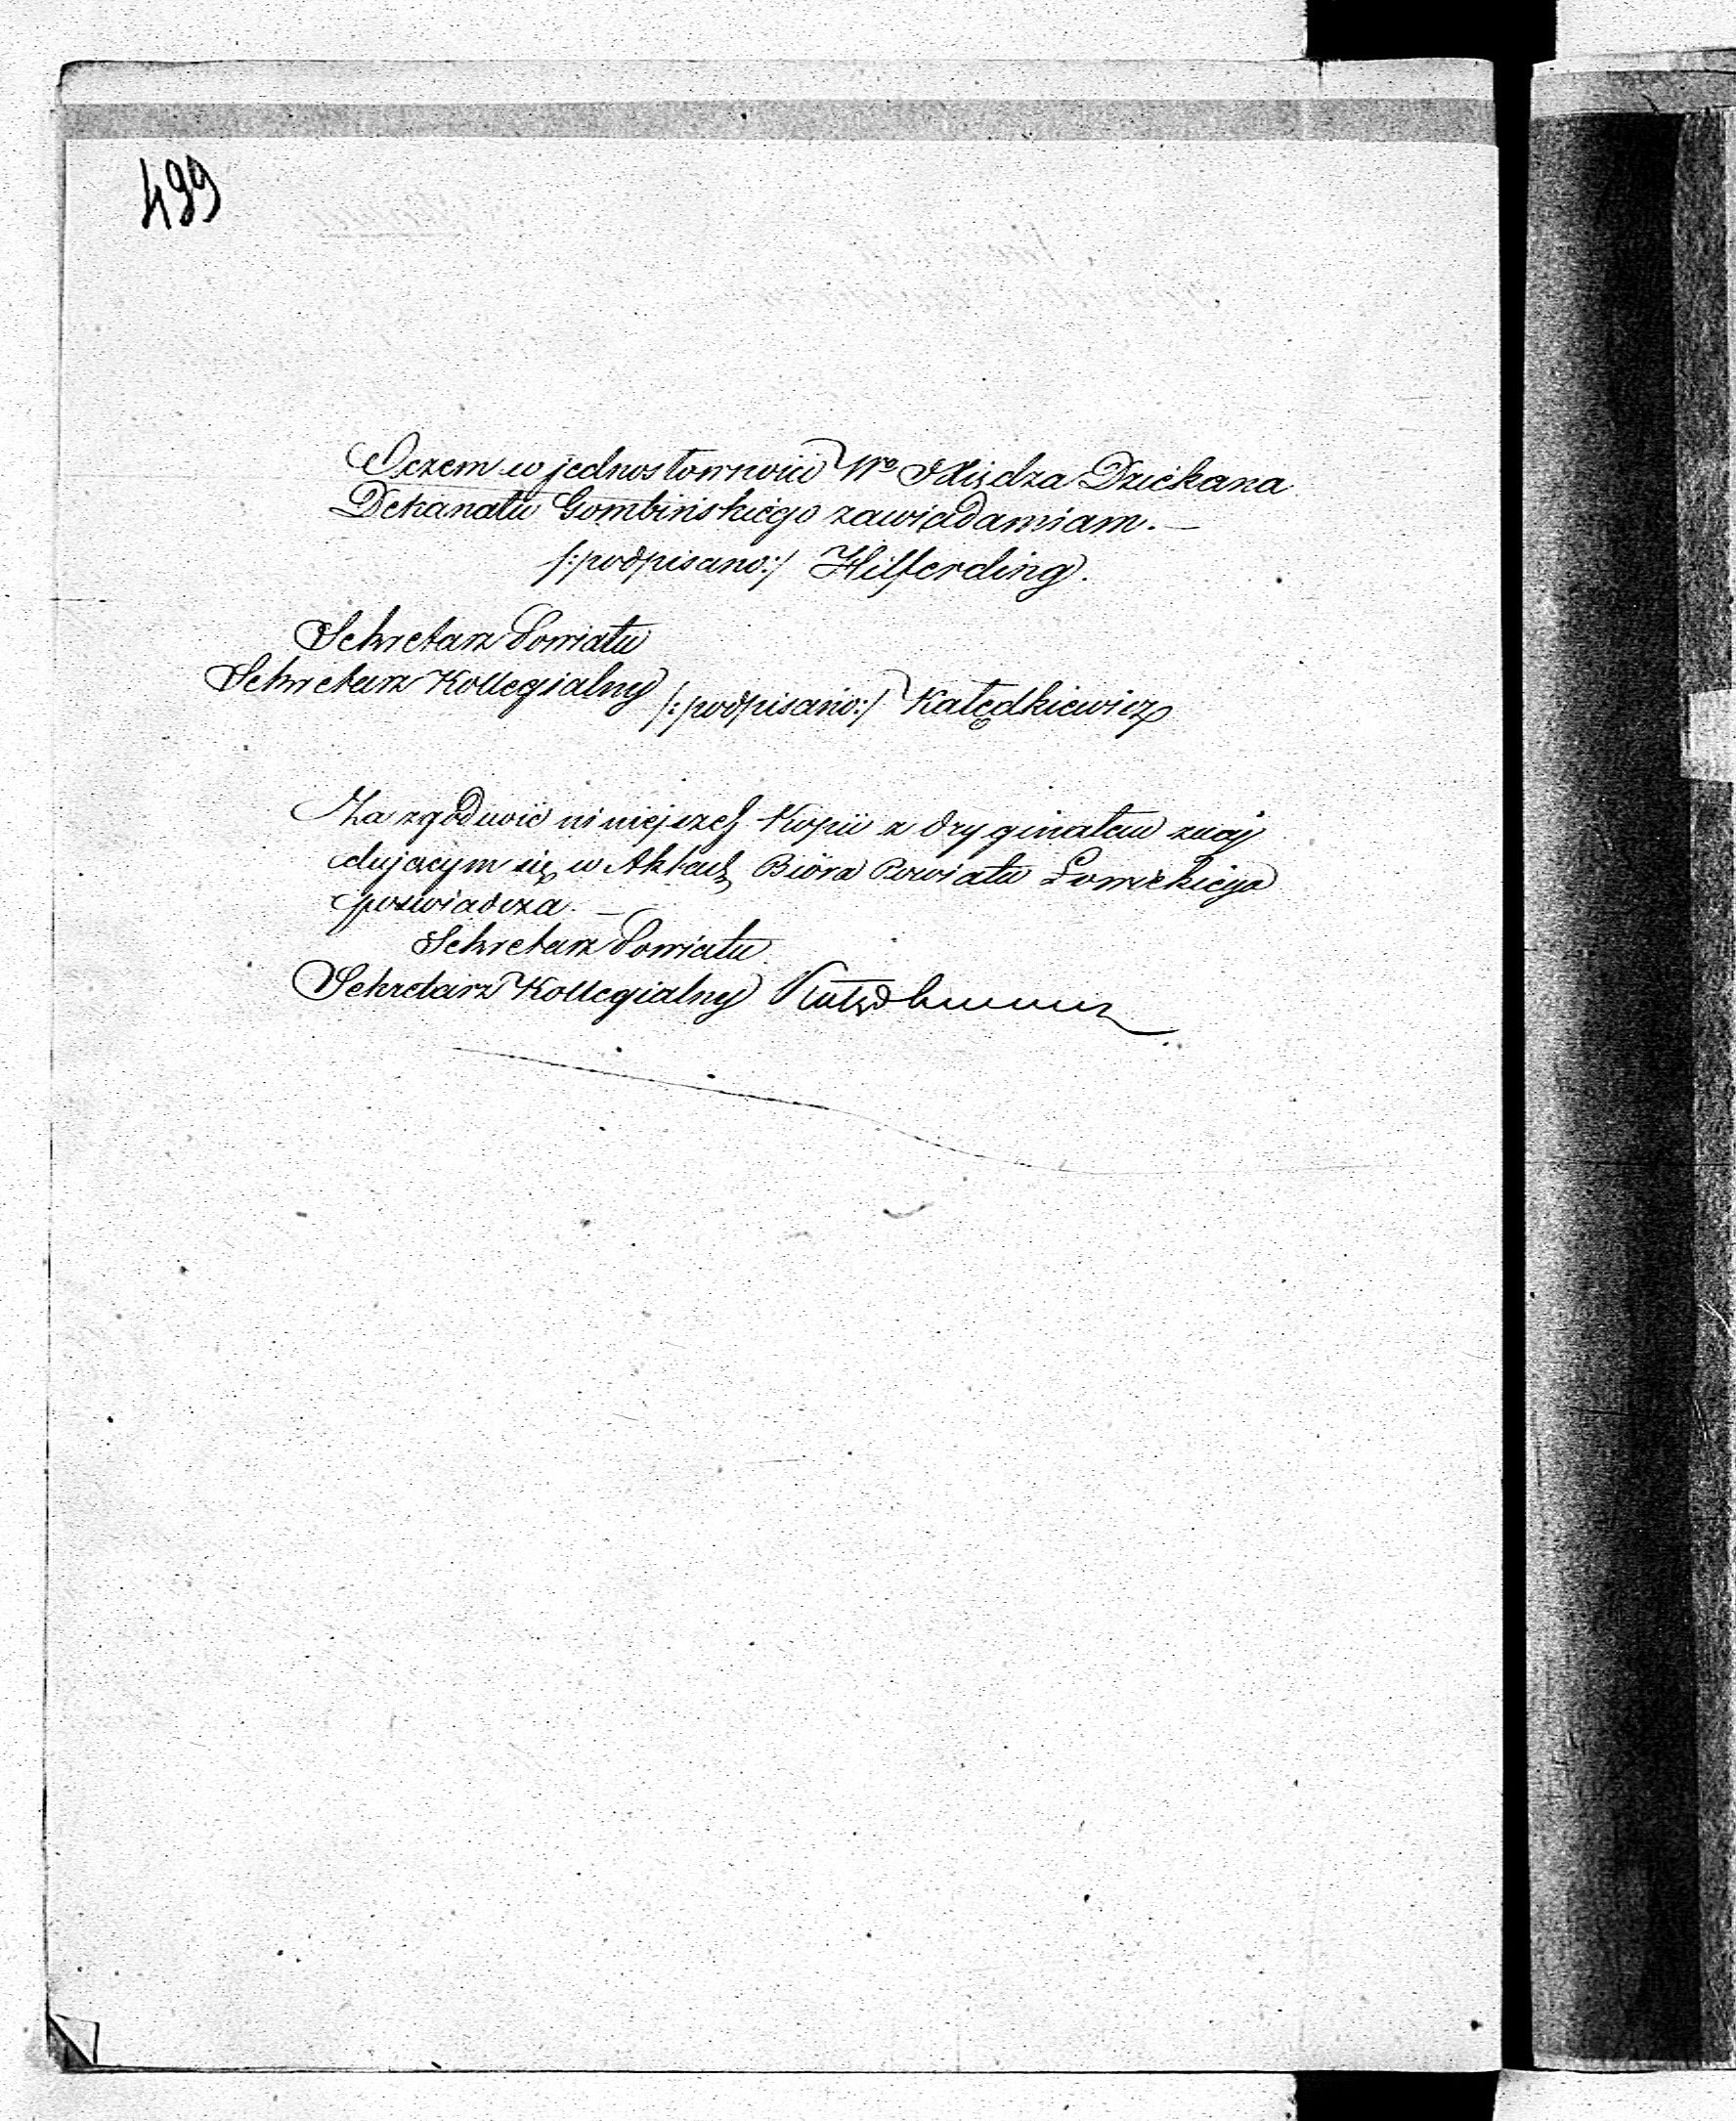 499
O czem w jednosłowności Wo Xiędza Dziekana
Dekanatu Gombińskiego zawiadamiam. —
/:podpisano:/ Hilferding.
Sekretarz Powiatu
Sekretarz Kollegialny /:podpisano:/ Kałędkiewicz
Za zgodność niniejszej Kopii z Oryginałem znaj
dującym się w Aktach Bióra Powiatu Łowickiego
poswiadcza. —
Sekretarz Powiatu
Sekretarz Kollegialny